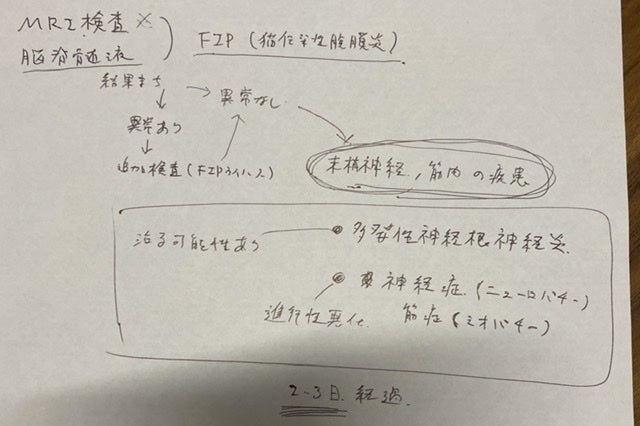 MRI検査 ×
脳脊髄液
FIP (猫伝染性腹膜炎)
結果まち
異常なし
異常あり
追加検査(FIPウイルス)
末梢神経, 筋肉の疾患
治る可能性あり
多発性神経根神経炎
神経症 (ニューロパチー)
進行性悪化
筋症 (ミオパチー)
2-3日 経過.